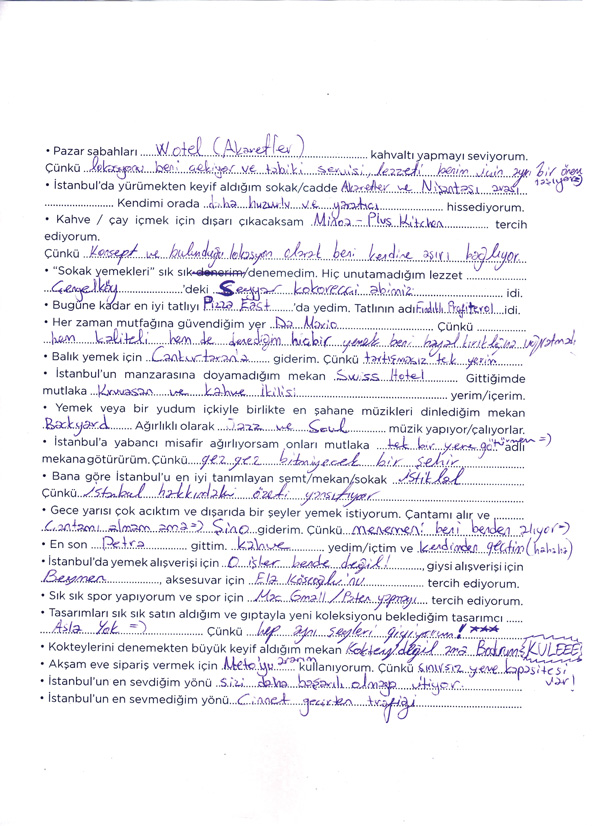 • Pazar sabahları .... Wotel (Akaretler) .... kahvaltı yapmayı seviyorum.
Çünkü lokasyonu beni çekiyor ve tabiki servisi, lezzeti benim için ayrı bir önem taşıyor =)
• İstanbul'da yürümekten keyif aldığım sokak/cadde Akaretler ve Nişantaşı arası
.................... Kendimi orada ... daha huzurlu ve yaratıcı .... hissediyorum.
• Kahve / çay içmek için dışarı çıkacaksam Mixoz - Plus Kitchen .... tercih
ediyorum.
Çünkü Konsept ve bulunduğu lokasyon olarak beni kendine aşırı bağlıyor
• "Sokak yemekleri" sık sık denerim/denemedim. Hiç unutamadığım lezzet ....
Çengelköy ....'deki Seyyar kokoreççi abimiz .... idi.
• Bugüne kadar en iyi tatlıyı Pizza East ....'da yedim. Tatlının adı Fıstıklı Profiterol ...idi.
• Her zaman mutfağına güvendiğim yer Da Mario .... Çünkü ....
hem kaliteli hem de denediğim hiçbir yemek beni hayal kırıklığına uğratmadı
• Balık yemek için .... Cankurtarana .... giderim. Çünkü tartışmasız tek yerim ....
• İstanbul'un manzarasına doyamadığım mekan Swiss Hotel .... Gittiğimde
mutlaka Kruvasan ve kahve ikilisi .... yerim/içerim.
• Yemek veya bir yudum içkiyle birlikte en şahane müzikleri dinlediğim mekan
Backyard .... Ağırlıklı olarak .... Jazz ve Soul .... müzik yapıyor/çalıyorlar.
• İstanbul'a yabancı misafir ağırlıyorsam onları mutlaka .... tek bir yere götürmem =) adlı
mekana götürürüm. Çünkü gez gez bitmeyecek bir şehir
• Bana göre İstanbul'u en iyi tanımlayan semt/mekan/sokak .. istiklal
Çünkü istanbul hakkındaki özeti yansıtıyor
• Gece yarısı çok acıktım ve dışarıda bir şeyler yemek istiyorum. Çantamı alır ve ....
(çantamı almam ama =) Sino giderim. Çünkü menemen! beni benden alıyor =)
• En son .... Petra .... gittim. kahve .... yedim/içtim ve kendimden geçtim (hahaha)
• İstanbul'da yemek alışverişi için O işler bende değil! ...., giysi alışverişi için
Beymen ...., aksesuvar için .... Ela Köseoğlu'nu .... tercih ediyorum.
• Sık sık spor yapıyorum ve spor için .... Mac Gmall / Paten yaparım .... tercih ediyorum.
• Tasarımları sık sık satın aldığım ve gıptayla yeni koleksiyonu beklediğim tasarımcı ....
.... Asla Yok =) .... Çünkü .... hep aynı şeyleri giyiyorum! ***
• Kokteylerini denemekten büyük keyif aldığım mekan Kokteyl değil ama Bodrum KULEEE!
• Akşam eve sipariş vermek için Meta'yı kullanıyorum. Çünkü sınırsız yeme kapasitesi var!
• İstanbul'un en sevdiğim yönü sizi daha başarılı olmaya itiyor
• İstanbul'un en sevmediğim yönü Cinnet geçirten trafiği